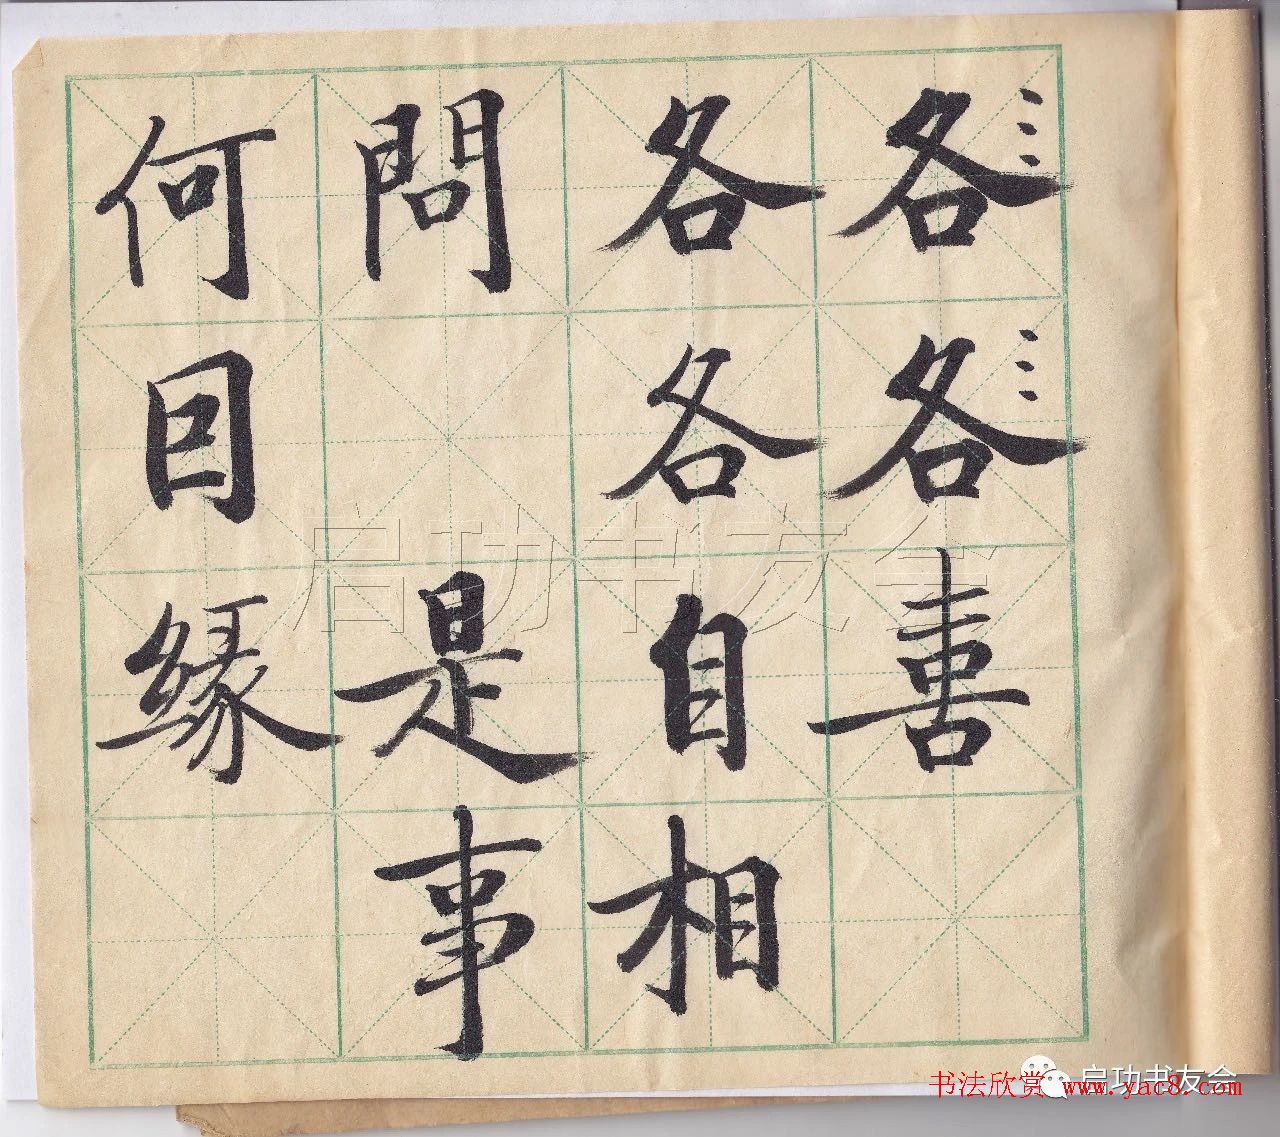 各各喜
各各自相
問 是事
何囙緣
启功书友会
启功书友会
书法欣赏 www.yac8.com